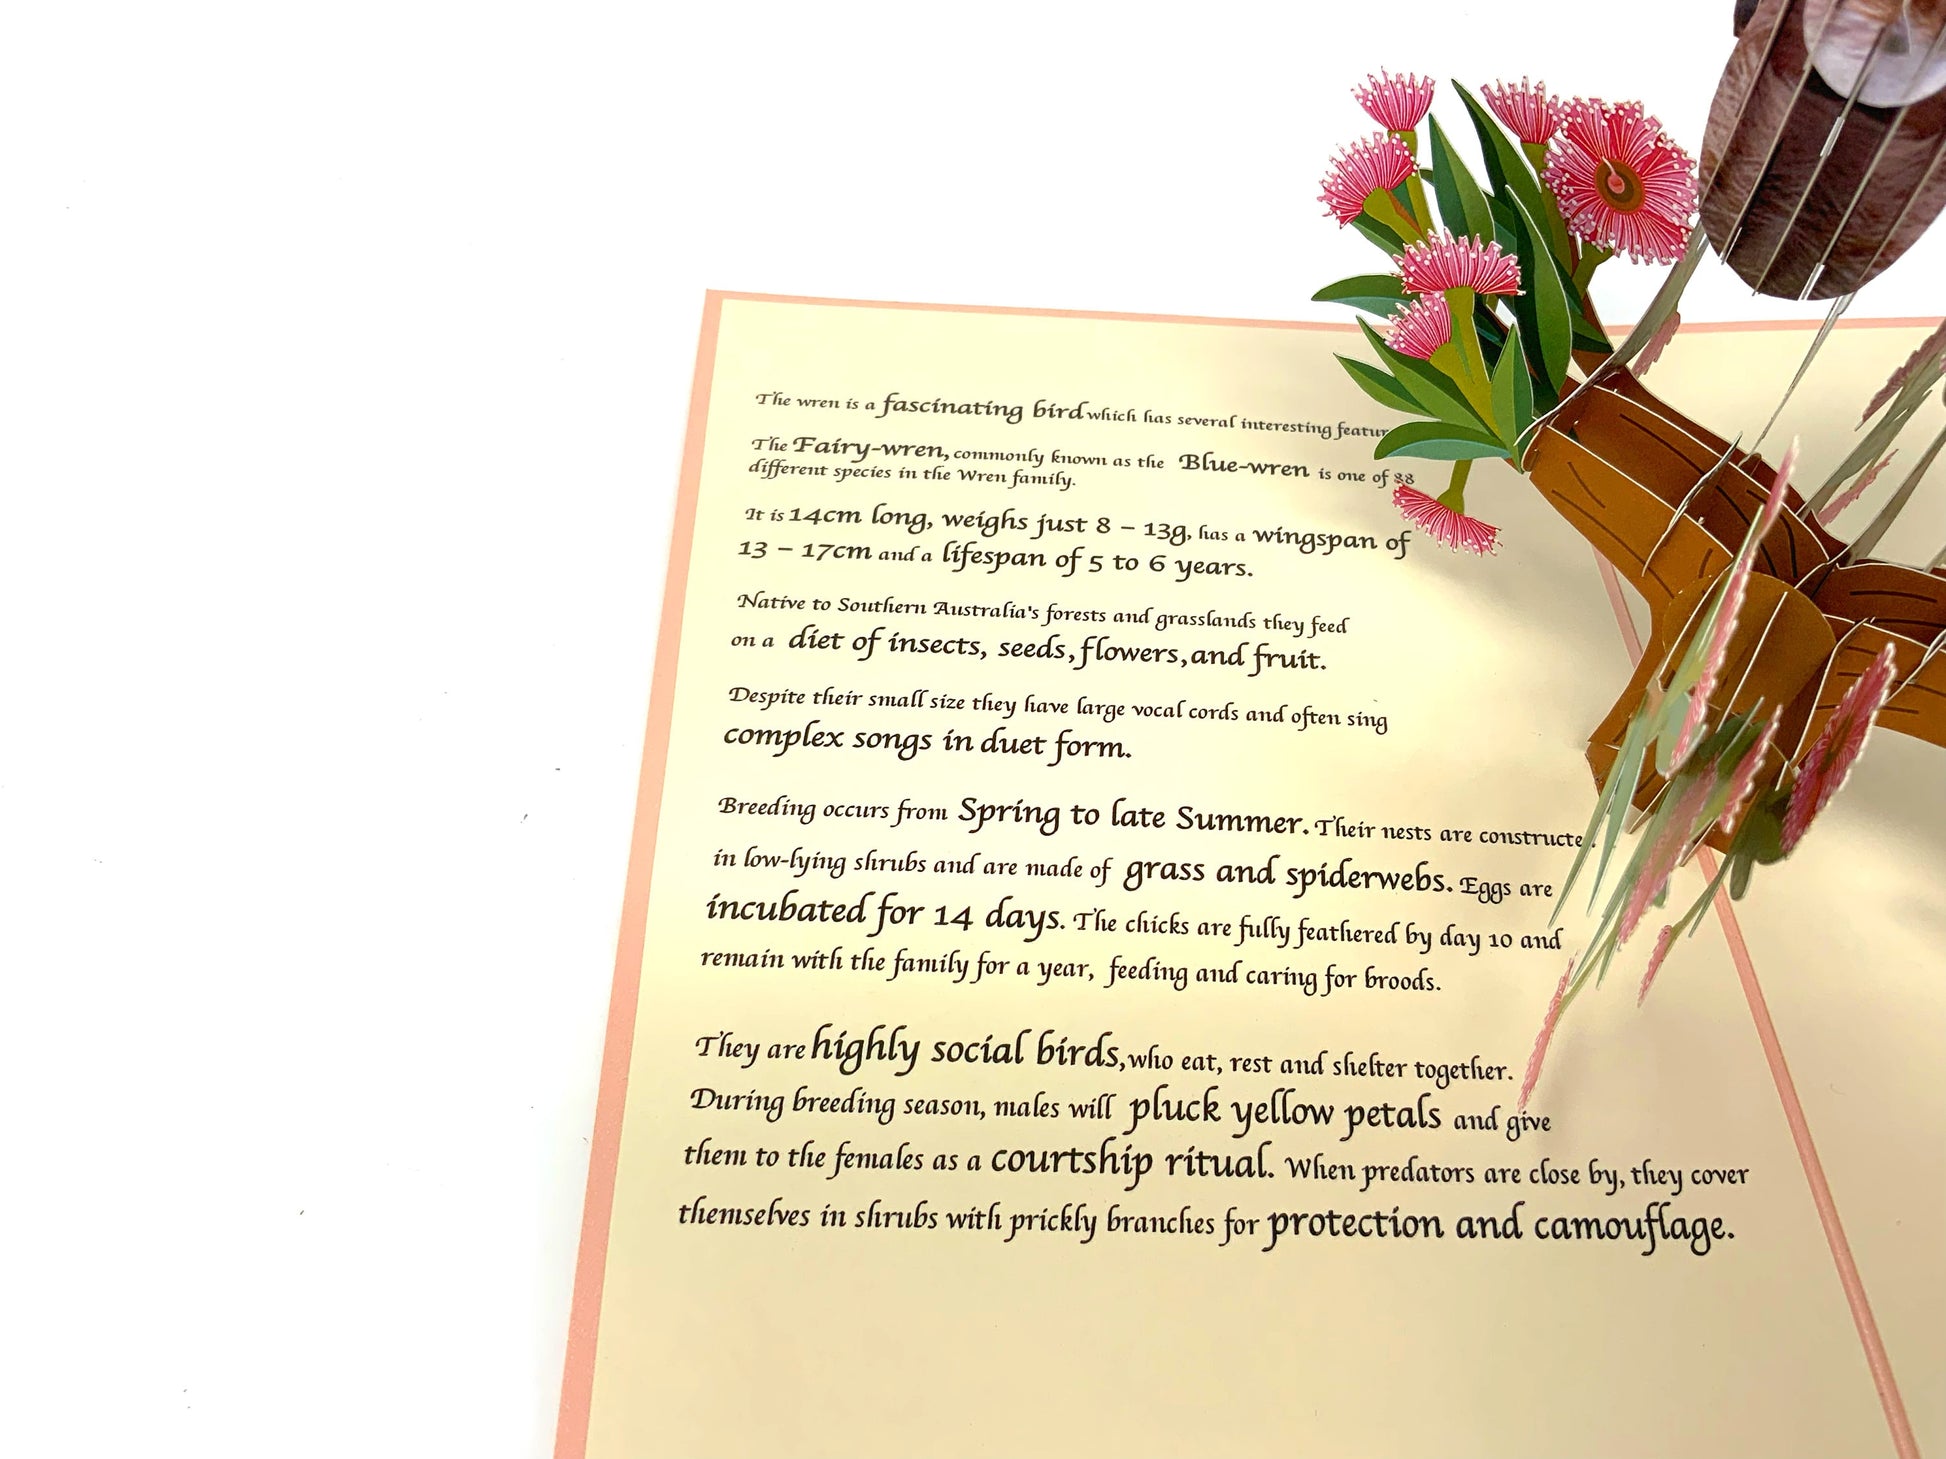 The wren is a fascinating bird which has several interesting
The Fairy-wren, commonly known as the Blue-wren is one of 88
different species in the Wren family.
It is 14cm long, weighs just 8 – 13g, has a wingspan of
13 – 17cm and a lifespan of 5 to 6 years.
Native to Southern Australia's forests and grasslands they feed
on a diet of insects, seeds, flowers, and fruit.
Despite their small size they have large vocal cords and often sing
complex songs in duet form.
Breeding occurs from Spring to late Summer. Their nests are
in low-lying shrubs and are made of grass and spiderwebs. Eggs are
incubated for 14 days. The chicks are fully feathered by day 10 and
remain with the family for a year, feeding and caring for broods.
They are highly social birds, who eat, rest and shelter together.
During breeding season, males will pluck yellow petals and give
them to the females as a courtship ritual. When predators are close by, they cover
themselves in shrubs with prickly branches for protection and camouflage.